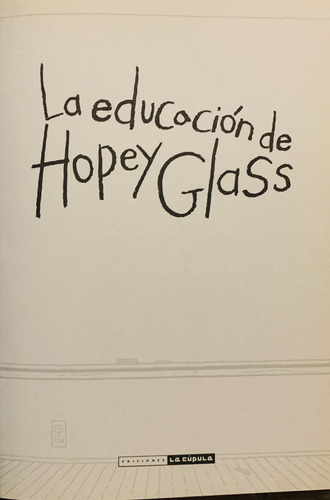 La educación de
Hopey Glass
EDICIONES LA CÚPULA